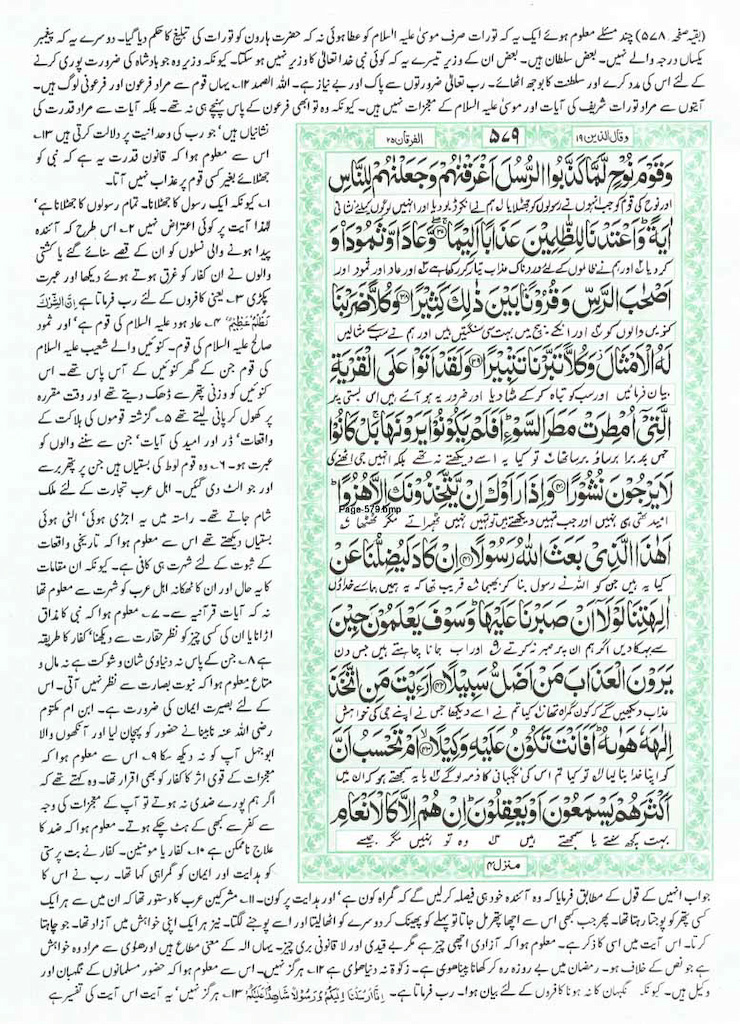 (بقیہ صفحہ ۵۷۸) چند مسئلے معلوم ہوئے ایک یہ کہ تورات صرف موسیٰ علیہ السلام کو عطا ہوئی نہ کہ حضرت ہارون کو تورات کی تبلیغ کا حکم دیا گیا۔ دوسرے یہ کہ پیغمبر
یکساں درجہ والے نہیں۔ بعض سلطان ہیں۔ بعض ان کے وزیر تیسرے یہ کہ کوئی نبی خدا تعالیٰ کا وزیر نہیں ہو سکتا۔ کیونکہ وزیر وہ جو بادشاہ کی ضرورت پوری کرنے
کے لئے اس کی مدد کرے اور سلطنت کا بوجھ اٹھائے۔ رب تعالیٰ ضرورتوں سے پاک اور بے نیاز ہے۔ اللہ الصمد ۱۲؎ یہاں قوم سے مراد فرعون اور فرعونی لوگ ہیں۔
آیتوں سے مراد تورات شریف کی آیات اور موسیٰ علیہ السلام کے معجزات نہیں ہیں۔ کیونکہ وہ تو ابھی فرعون کے پاس پہنچے ہی نہ تھے۔ بلکہ آیات سے مراد قدرت کی
وقال الذین ۱۹
۵۷۹
الفرقان ۲۵
وَقَوْمَ نُوْحٍ لَّمَّا كَذَّبُوا الرُّسُلَ اَغْرَقْنٰهُمْ وَجَعَلْنٰهُمْ لِلنَّاسِ
اور نوح کی قوم کو جب انہوں نے رسولوں کو جھٹلایا ہم نے انکو ڈبو دیا اور انہیں لوگوں کیلئے نشانی
اٰيَةً وَاَعْتَدْنَا لِلظّٰلِمِيْنَ عَذَابًا اَلِيْمًا ۝ وَّعَادًا وَّثَمُوْدَا۟ وَ
کر دیا اور ہم نے ظالموں کے لئے دردناک عذاب تیار کر رکھا ہے اور عاد اور ثمود اور
اَصْحٰبَ الرَّسِّ وَقُرُوْنًا بَيْنَ ذٰلِكَ كَثِيْرًا ۝ وَكُلًّا ضَرَبْنَا
کنویں والوں کو اور انکے بیچ میں بہت سی سنگتیں اور ہم نے سب سے مثالیں
لَهُ الْاَمْثَالَ وَكُلًّا تَبَّرْنَا تَتْبِيْرًا ۝ وَلَقَدْ اَتَوْا عَلَى الْقَرْيَةِ
بیان فرمائیں اور سب کو تباہ کر کے مٹا دیا اور ضرور یہ ہو آئے ہیں اس بستی پر
الَّتِيْٓ اُمْطِرَتْ مَطَرَ السَّوْءِ اَفَلَمْ يَكُوْنُوْا يَرَوْنَهَا بَلْ كَانُوْا
جس پر برا برساؤ برسا تھا تو کیا یہ اسے دیکھتے نہ تھے بلکہ انہیں جی اٹھنے کی
لَا يَرْجُوْنَ نُشُوْرًا ۝ وَاِذَا رَاَوْكَ اِنْ يَّتَّخِذُوْنَكَ اِلَّا هُزُوًا
Page-579.bmp
امید تھی ہی نہیں اور جب تمہیں دیکھتے ہیں تو تمہیں نہیں ٹھہراتے مگر ٹھٹھا
اَهٰذَا الَّذِيْ بَعَثَ اللّٰهُ رَسُوْلًا ۝ اِنْ كَادَ لَيُضِلُّنَا عَنْ
کیا یہ ہیں جن کو اللہ نے رسول بنا کر بھیجا قریب تھا کہ یہ ہمیں ہمارے خداؤں
اٰلِهَتِنَا لَوْلَآ اَنْ صَبَرْنَا عَلَيْهَا وَسَوْفَ يَعْلَمُوْنَ حِيْنَ
سے بہکا دیں اگر ہم ان پر صبر نہ کرتے اور اب جانا چاہتے ہیں جس دن
يَرَوْنَ الْعَذَابَ مَنْ اَضَلُّ سَبِيْلًا ۝ اَرَءَيْتَ مَنِ اتَّخَذَ
عذاب دیکھیں گے کہ کون گمراہ تھا کیا تم نے اسے دیکھا جس نے اپنے جی کی خواہش
اِلٰهَهٗ هَوٰىهُ اَفَاَنْتَ تَكُوْنُ عَلَيْهِ وَكِيْلًا ۝ اَمْ تَحْسَبُ اَنَّ
کو اپنا خدا بنا لیا تو کیا تم اس کی نگہبانی کا ذمہ لو گے یا یہ سمجھتے ہو کہ ان میں
اَكْثَرَهُمْ يَسْمَعُوْنَ اَوْ يَعْقِلُوْنَ اِنْ هُمْ اِلَّا كَالْاَنْعَامِ
بہت کچھ سنتے یا سمجھتے ہیں وہ تو نہیں مگر جیسے
منزل ۴
نشانیاں ہیں' جو رب کی وحدانیت پر دلالت کرتی ہیں ۱۳؎
اس سے معلوم ہوا کہ قانون قدرت یہ ہے کہ نبی کو
جھٹلائے بغیر کسی قوم پر عذاب نہیں آتا۔
۱؎ کیونکہ ایک رسول کا جھٹلانا۔ تمام رسولوں کا جھٹلانا ہے'
لہٰذا آیت پر کوئی اعتراض نہیں ۲؎ اس طرح کہ آئندہ
پیدا ہونے والی نسلوں کو ان کے قصے سنائے گئے یا کشتی
والوں نے ان کفار کو غرق ہوتے ہوئے دیکھا اور عبرت
پکڑی ۳؎ یعنی کافروں کے لئے رب فرماتا ہے اِنَّ الشِّرْكَ
لَظُلْمٌ عَظِيْمٌ ۴؎ عاد ہود علیہ السلام کی قوم ہے' اور ثمود
صالح علیہ السلام کی قوم۔ کنوئیں والے شعیب علیہ السلام
کی قوم جن کے گھر کنوئیں کے آس پاس تھے۔ اس
کنوئیں کو وزنی پتھر سے ڈھک دیتے تھے اور وقت مقررہ
پر کھول کر پانی لیتے تھے ۵؎ گزشتہ قوموں کی ہلاکت کے
واقعات' ڈر اور امید کی آیات' جن سے سننے والوں کو
عبرت ہو۔ ۶؎ وہ قوم لوط کی بستیاں ہیں جن پر پتھر برسے
اور جو الٹ دی گئیں۔ اہل عرب تجارت کے لئے ملک
شام جاتے تھے۔ راستہ میں یہ اجڑی ہوئی' الٹی ہوئی
بستیاں دیکھتے تھے اس سے معلوم ہوا کہ تاریخی واقعات
کے ثبوت کے لئے شہرت ہی کافی ہے۔ کیونکہ ان مقامات
کا یہ حال اور ان کا ٹھکانہ اہل عرب کو شہرت سے معلوم تھا
نہ کہ آیات قرآنیہ سے۔ ۷؎ معلوم ہوا کہ نبی کا مذاق
اڑانا یا ان کی کسی چیز کو نظر حقارت سے دیکھنا' کفار کا طریقہ
ہے ۸؎ جن کے پاس نہ دنیاوی شان و شوکت ہے نہ مال و
متاع معلوم ہوا کہ نبوت بصارت سے نظر نہیں آتی۔ اس
کے لئے بصیرت ایمان کی ضرورت ہے۔ ابن ام مکتوم
رضی اللہ عنہ نابینا نے حضور کو پہچان لیا اور آنکھوں والا
ابوجہل آپ کو نہ دیکھ سکا ۹؎ اس سے معلوم ہوا کہ
معجزات کے قوی اثر کا کفار کو بھی اقرار تھا۔ وہ کہتے تھے کہ
اگر ہم پورے ضدی نہ ہوتے تو آپ کے معجزات کی وجہ
سے کفر سے کبھی کے ہٹ چکے ہوتے۔ معلوم ہوا کہ ضد کا
علاج ناممکن ہے ۱۰؎ کفار یا مومنین۔ کفار نے بت پرستی
کو ہدایت اور ایمان کو گمراہی کہا تھا۔ رب نے اس کا
جواب انہیں کے قول کے مطابق فرمایا کہ وہ آئندہ خود ہی فیصلہ کر لیں گے کہ گمراہ کون ہے' اور ہدایت پر کون۔ ۱۱؎ مشرکین عرب کا دستور تھا کہ ان میں سے ہر ایک
کسی پتھر کو پوجتا رہتا تھا۔ پھر جب کبھی اس سے اچھا پتھر مل جاتا تو پہلے کو پھینک کر دوسرے کو اٹھا لیتا اور اسے پوجنے لگتا۔ نیز ہر ایک اپنی خواہش میں آزاد تھا۔ جو چاہتا
کرتا۔ اس آیت میں اسی کا ذکر ہے۔ معلوم ہوا کہ آزادی اچھی چیز ہے مگر بے قیدی اور لا قانونی بری چیز۔ یہاں الہ کے معنی مطاع ہیں اور ھوٰی سے مراد وہ خواہش
ہے جو نص کے خلاف ہو۔ رمضان میں بے روزہ رہ کر کھانا پینا ھوٰی ہے۔ زکوٰۃ نہ دینا ھوٰی ہے ۱۲؎ ہرگز نہیں۔ اس سے معلوم ہوا کہ حضور مسلمانوں کے نگہبان اور
وکیل ہیں۔ کیونکہ نگہبان کا نہ ہونا کافروں کے لئے بیان ہوا۔ رب فرماتا ہے۔ اِنَّا اَرْسَلْنَا اِلَيْكُمْ رَسُوْلًا شَاهِدًا عَلَيْكُمْ ۱۳؎ ہرگز نہیں' یہ آیت اس آیت کی تفسیر ہے